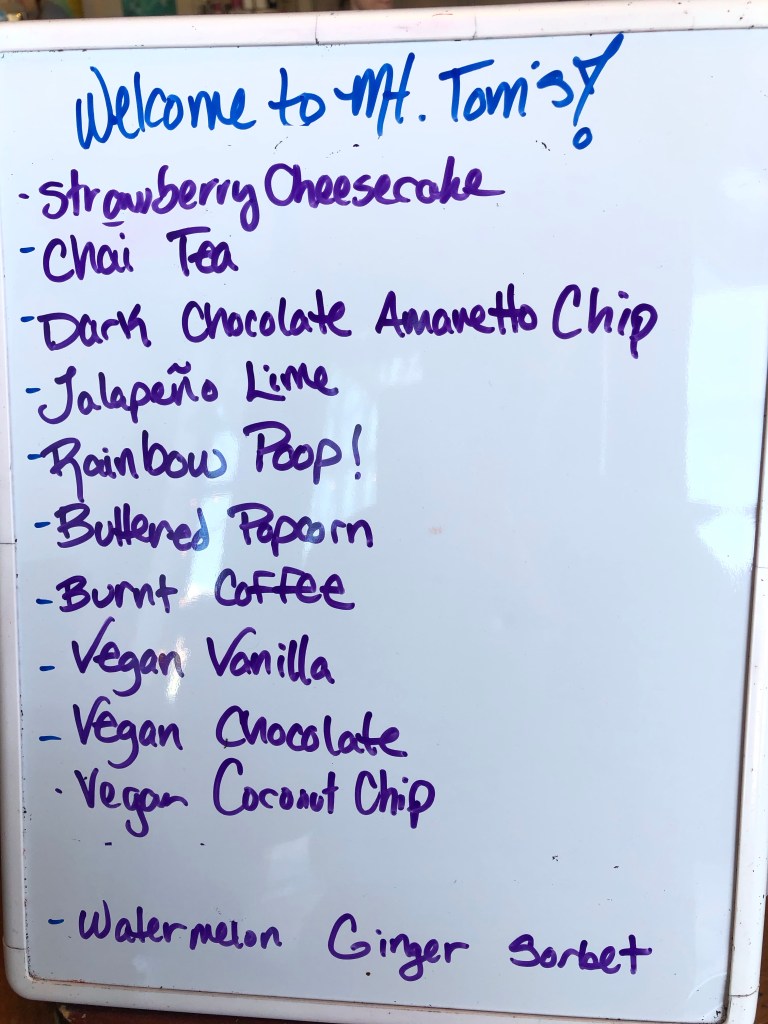 Welcome to Mt. Tom's!
· Strawberry Cheesecake
- Chai Tea
- Dark Chocolate Amaretto Chip
- Jalapeño Lime
- Rainbow Poop!
- Buttered Popcorn
- Burnt Coffee
- Vegan Vanilla
- Vegan Chocolate
· Vegan Coconut Chip
- Watermelon Ginger Sorbet